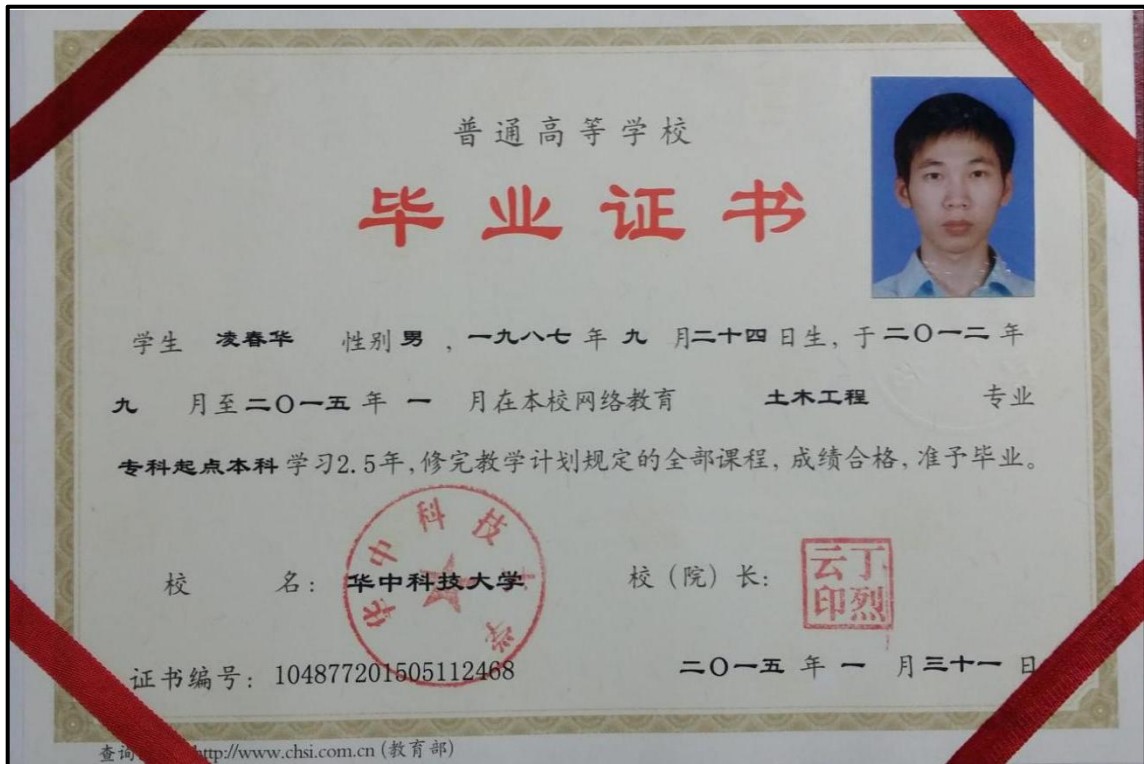 普通高等学校
毕业证书
学生 凌春华 性别 男 , 一九八七 年 九 月 二十四 日生, 于 二〇一二 年
九 月至 二〇一五 年 一 月在本校网络教育 土木工程 专业
专科起点本科 学习2.5年, 修完教学计划规定的全部课程, 成绩合格, 准予毕业。
华中科技大学
校 名: 华中科技大学 校(院)长: 丁烈云印
证书编号: 104877201505112468 二〇一五 年 一 月 三十一 日
查询 http://www.chsi.com.cn (教育部)